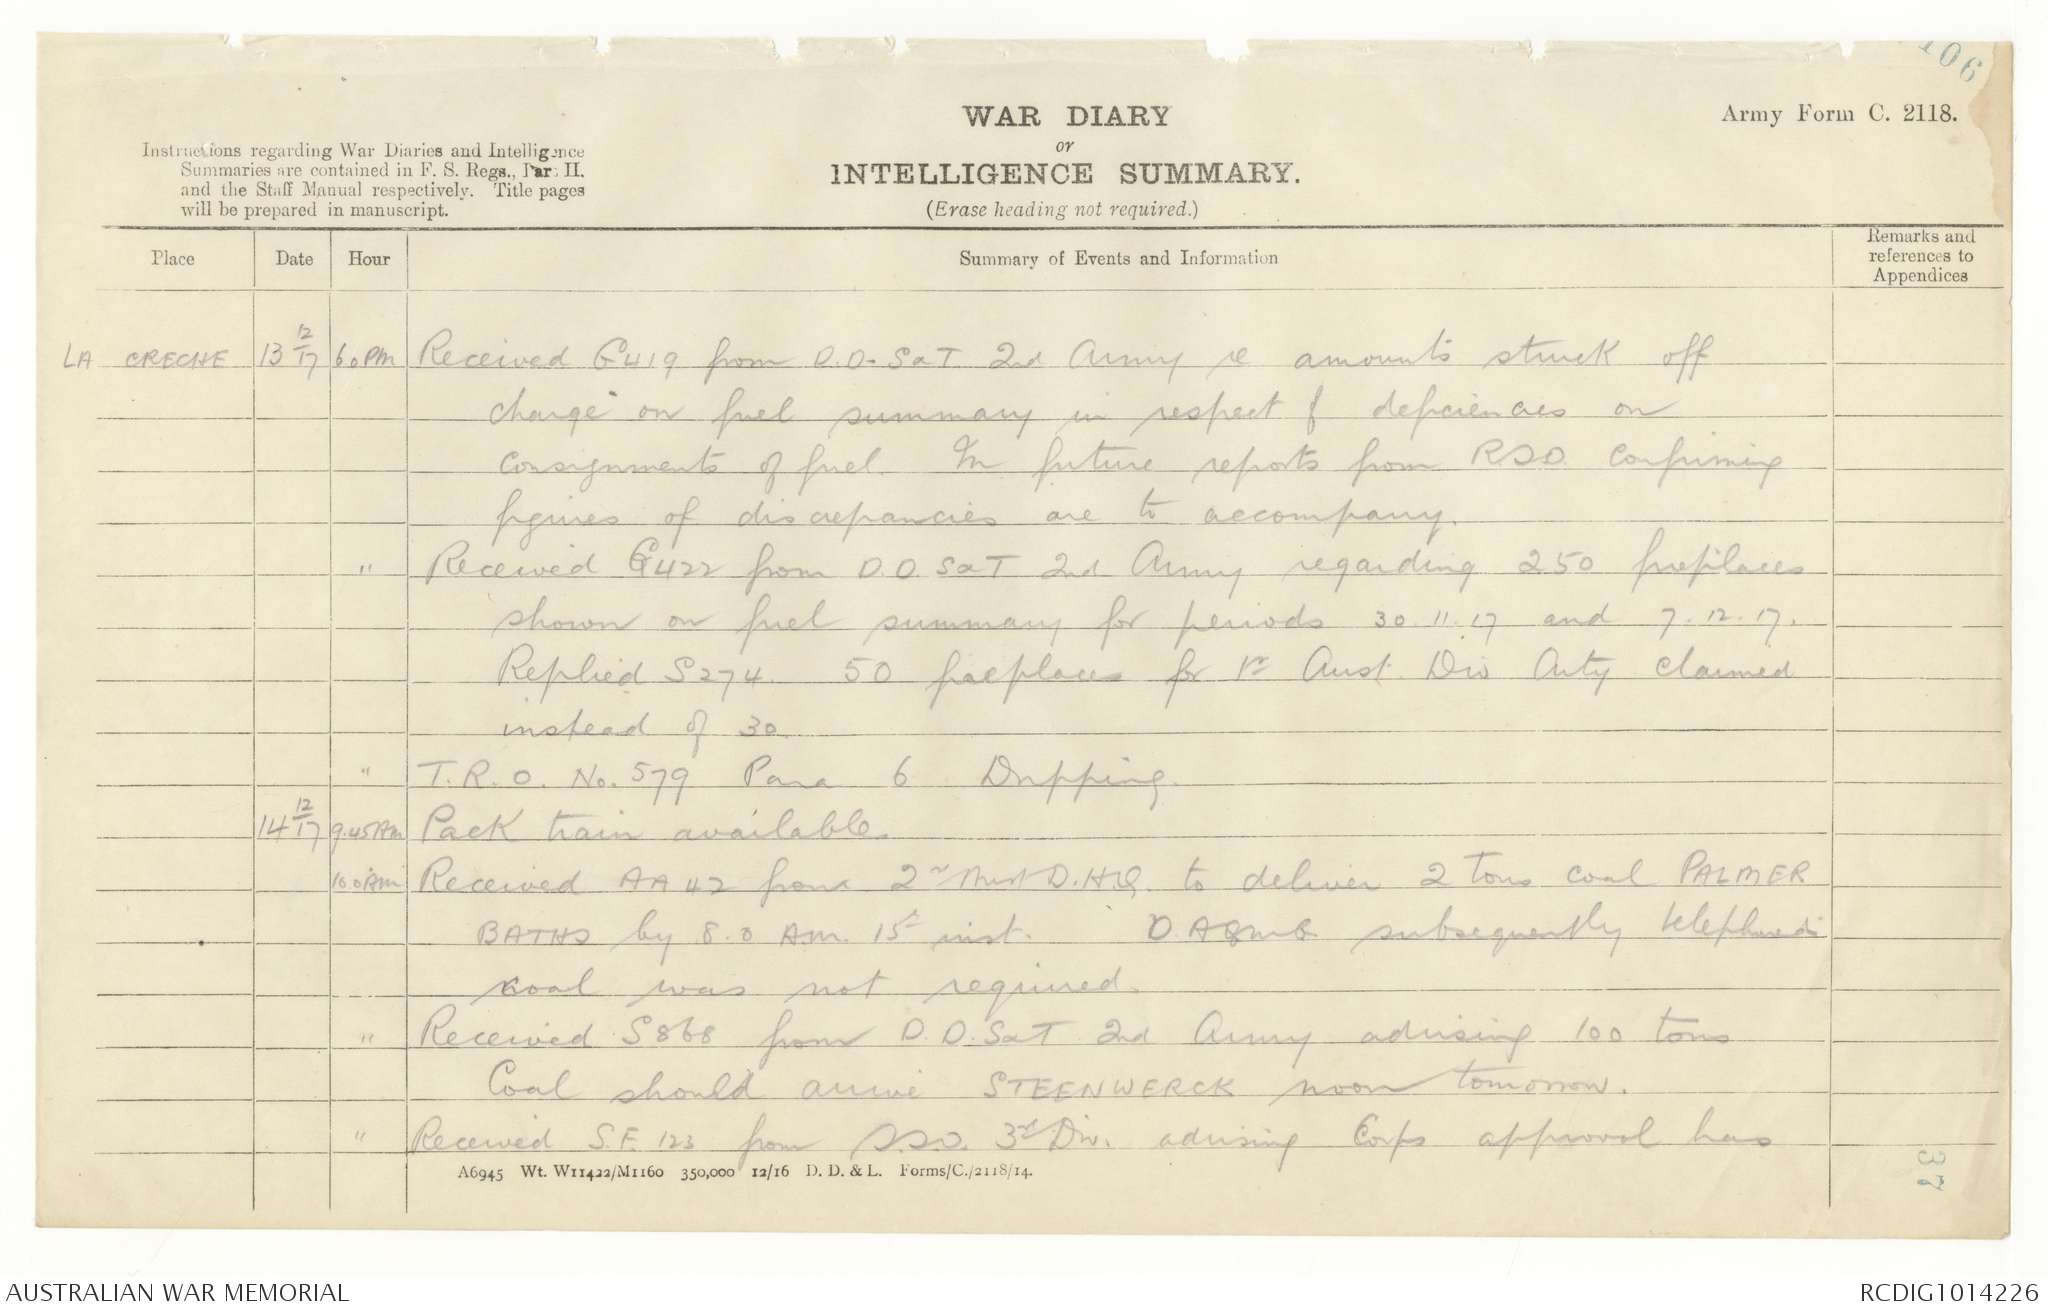 106
WAR DIARY
or
INTELLIGENCE SUMMARY.
(Erase heading not required.)
Army Form C. 2118.
Instructions regarding War Diaries and Intelligence
Summaries are contained in F. S. Regs., Part II.
and the Staff Manual respectively. Title pages
will be prepared in manuscript.
Place Date Hour Summary of Events and Information Remarks and references to Appendices
LA CRECHE 13 12/17 6 0 PM Received G419 from D.D.SaT 2nd Army re amounts struck off
charge on fuel summary in respect of deficiencies on
consignments of fuel. In future reports from RSO confirming
figures of discrepancies are to accompany.
" Received G422 from D.D.SaT 2nd Army regarding 250 fireplaces
shown on fuel summary for periods 30.11.17 and 7.12.17.
Replied S274. 50 fireplaces for 1st Aust. Div Arty claimed
instead of 30.
" T.R.O. No. 579 Para 6 Dripping.
14 12/17 9.45AM Pack train available.
10 0 AM Received AA42 from 2nd Aust D.H.Q. to deliver 2 Tons coal PALMER
BATHS by 8.0 A.M. 15th inst. D.AQMG subsequently telephoned
coal was not required.
" Received S868 from D.D.SaT 2nd Army advising 100 tons
Coal should arrive STEENWERCK noon tomorrow.
" Received S.F. 123 from S.S.O. 3rd Div. advising Corps approval has
A6945 Wt. W11422/M1160 350,000 12/16 D. D. & L. Forms/C./2118/14.
37
AUSTRALIAN WAR MEMORIAL
RCDIG1014226